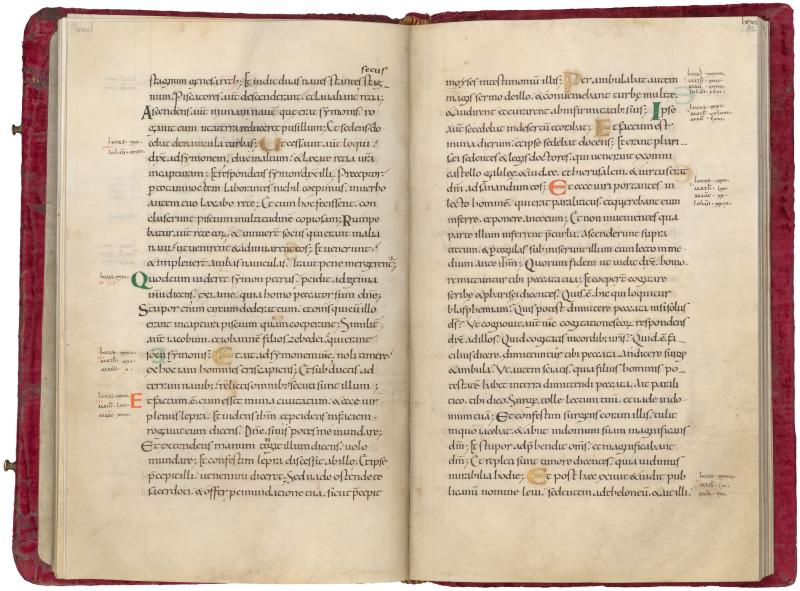 secus
stagnum genesareth; Et uidit duas naues stantes stag
num. Piscatores aut descenderant, et lauabant retia;
Ascendens aut in unam nauem que erat symonis, ro
gauit eum ut a terra reducere pusillum; Et sedens do
cebat de nauicula turbas; Ut cessauit aut loqui,
dix ad symonem, duc in altum, et laxate retia ura
in capturam; Et respondens symon dix illi; Preceptor,
per totam noctem laborantes nichil coepimus, in uerbo
autem tuo laxabo rete; Et cum hoc fecissent, con
cluserunt piscium multitudinem copiosam; Rumpe
batur aut rete eoru, et innuerunt sociis qui erant in alia
naui, ut uenirent et adiuuarent eos; Et uenerunt,
et impleuerunt ambas nauiculas, ita ut pene mergerentur;
Quod cum uideret symon petrus, procidit ad genua
ihu dicens, exi a me, quia homo peccator sum dne;
Stupor enim circumdederat eum, et omnes qui cum illo
erant in captura piscium quam coeperant; Similit
aut iacobum, et iohannem filios zebedei, qui erant
socii symonis; Et ait ad symonem ihc, noli timere,
ex hoc iam homines eris capiens; Et subductis ad
terram nauib, relictis omnib, secuti sunt illum;
Et factum e, cum esset in una ciuitatum, et ecce uir
plenus lepra, et uidens ihm, et procidens in faciem
rogauit eum dicens, Dne, si uis potes me mundare;
Et extendens manum tetigit illum dicens, uolo
mundare; Et confestim lepra discessit ab illo; Et ipse
precepit illi, ut nemini diceret, Sed uade ostende te
sacerdoti, et offer pro emundatione tua, sicut precepit
moyses in testimonium illis; Perambulabat autem
magis sermo de illo, et conueniebant turbe multe,
et audirent et curarent ab infirmitatib suis; Ipse
aut secedebat in desertum et orabat; Et factum est
in una dierum, et ipse sedebat docens; Et erant phari
sei sedentes et legis doctores, qui uenerant ex omni
castello galilee, et iudee, et hierusalem, et uirtus erat
dni, ad sanandum eos; Et ecce uiri portantes in
lecto hominem, qui erat paraliticus, et querebant eum
inferre, et ponere ante eum; Et non inuenientes qua
parte illum inferrent pre turba, Ascenderunt supra
tectum, et per tegulas submiserunt illum cum lecto in me
dium ante ihm; Quorum fidem ut uidit dix, homo,
remittuntur tibi peccata tua; Et coeperunt cogitare
scribe et pharisei dicentes, Quis e hic qui loquitur
blasphemiam, Quis potest dimittere peccata nisi solus
ds; Ut cognouit aut ihc cogitationes eoru, respondens
dix ad illos, Quid cogitatis in cordib uris; Quid e fa
cilius dicere, dimittuntur tibi peccata, an dicere surge
et ambula; Ut autem sciatis, quia filius hominis po
testatem habet in terra dimittendi peccata, Ait parali
tico, tibi dico, Surge, tolle lectum tuum, et uade in do
mum tuam; Et confestim surgens coram illis, tulit
in quo iacebat, et abiit in domum suam magnificans
dm; Et stupor adprehendit oms, et magnificabant
dm; Et repleti sunt timore dicentes, quia uidimus
mirabilia hodie; Et post haec exiuit, et uidit pub
licanum nomine leui, sedentem ad theloneum, et ait illi,